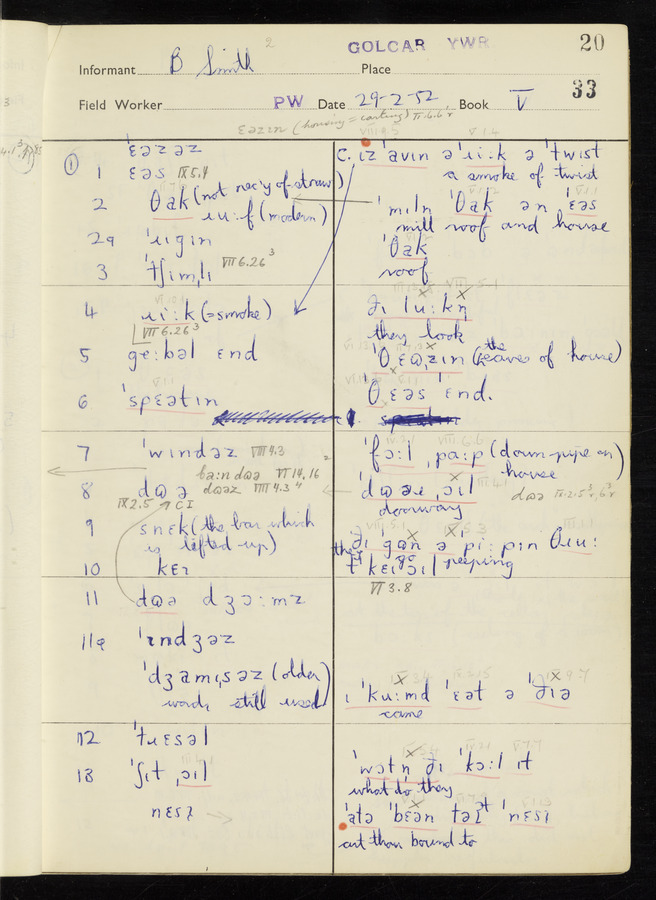 GOLCAR YWR 20
Informant B Smith Place
33
Field Worker PW Date 29-2-52 Book V
ɛəzɪn (housing = carting) II.6.6
① 'ɛəzəz
1 ɛəs IX 5.4
2 θak (not nec'y of straw)
ɹu:f (modern)
2a 'ɹigin
3 'tʃimlɪ VII 6.26³
4 ɹi:k (= smoke)
VII 6.26³
5 ge:bəl ɛnd
6 'spɛətɪn
7 'wɪndəz VIII 4.3
ba:n dɷə VI 14.16
8 dɷə dɷəz VIII 4.3
IX 2.5 CI
9 snɛk (the bar which
is lifted up)
10 kɛɪ
11 dɷə dʒɔ:mz
11a 'ɪndʒəz
'dʒamˌsəz (older
word, still used)
12 'tɹɛsəl
13 'ʃɪt ˌɔɪl
nɛsɪ
C. ɪz 'avɪn ə 'ɹi:k ə 'twɪst
a smoke of twist
'mɪln 'θak ən 'ɛəs
mill roof and house
'θak
roof
ðɪ lu:kŋ
they look
'θɛɷzɪn (the eaves of house)
'θɛəs 'ɛnd.
'fɔ:l ˌpa:p (down-pipe on
house)
'dɷəɹ ˌɔɪl dɷə IX.2.5
doorway
ðɪ 'gɷn ə pi:pɪn θɹu:
they go peeping
t'kɛɪ ɔɪl
VI 3.8
ɪ 'ku:md 'ɛət ə 'ðɪə
came
'wɔtŋ ðɪ 'kɔ:l ɪt
what do they
'atə 'bɛən təɪt 'nɛsɪ
art thou bound to